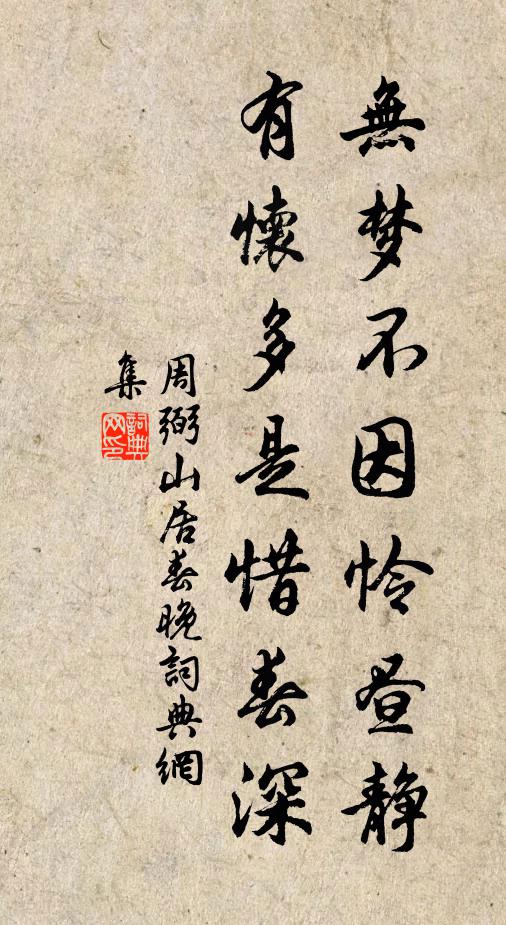 無梦不因怜昼静
有懷多是惜春深
周弼山居春晚詞典網
集
詞典
网印